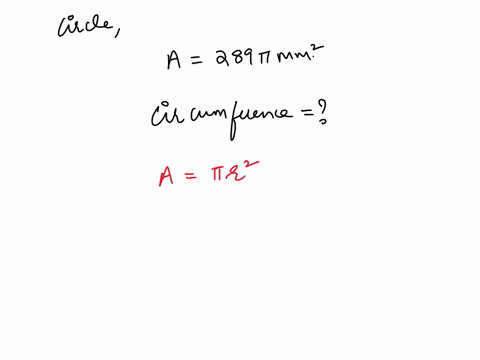 Circle,
A = 289π mm².
Circumference = ?
A = πr²